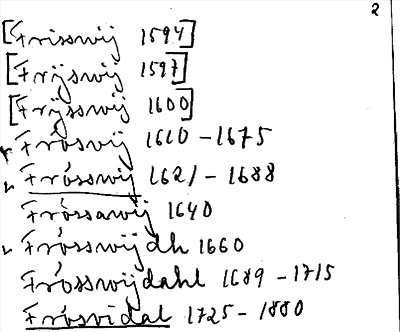 2
[Frisswij 1594]
[Frijswij 1597]
[Frijsswij 1600]
Frósvij 1610-1675
Frósswij 1621-1688
Frössawij 1640
Frósswijdh 1660
Frósswijdahl 1689-1715
Frösvidal 1725-1880